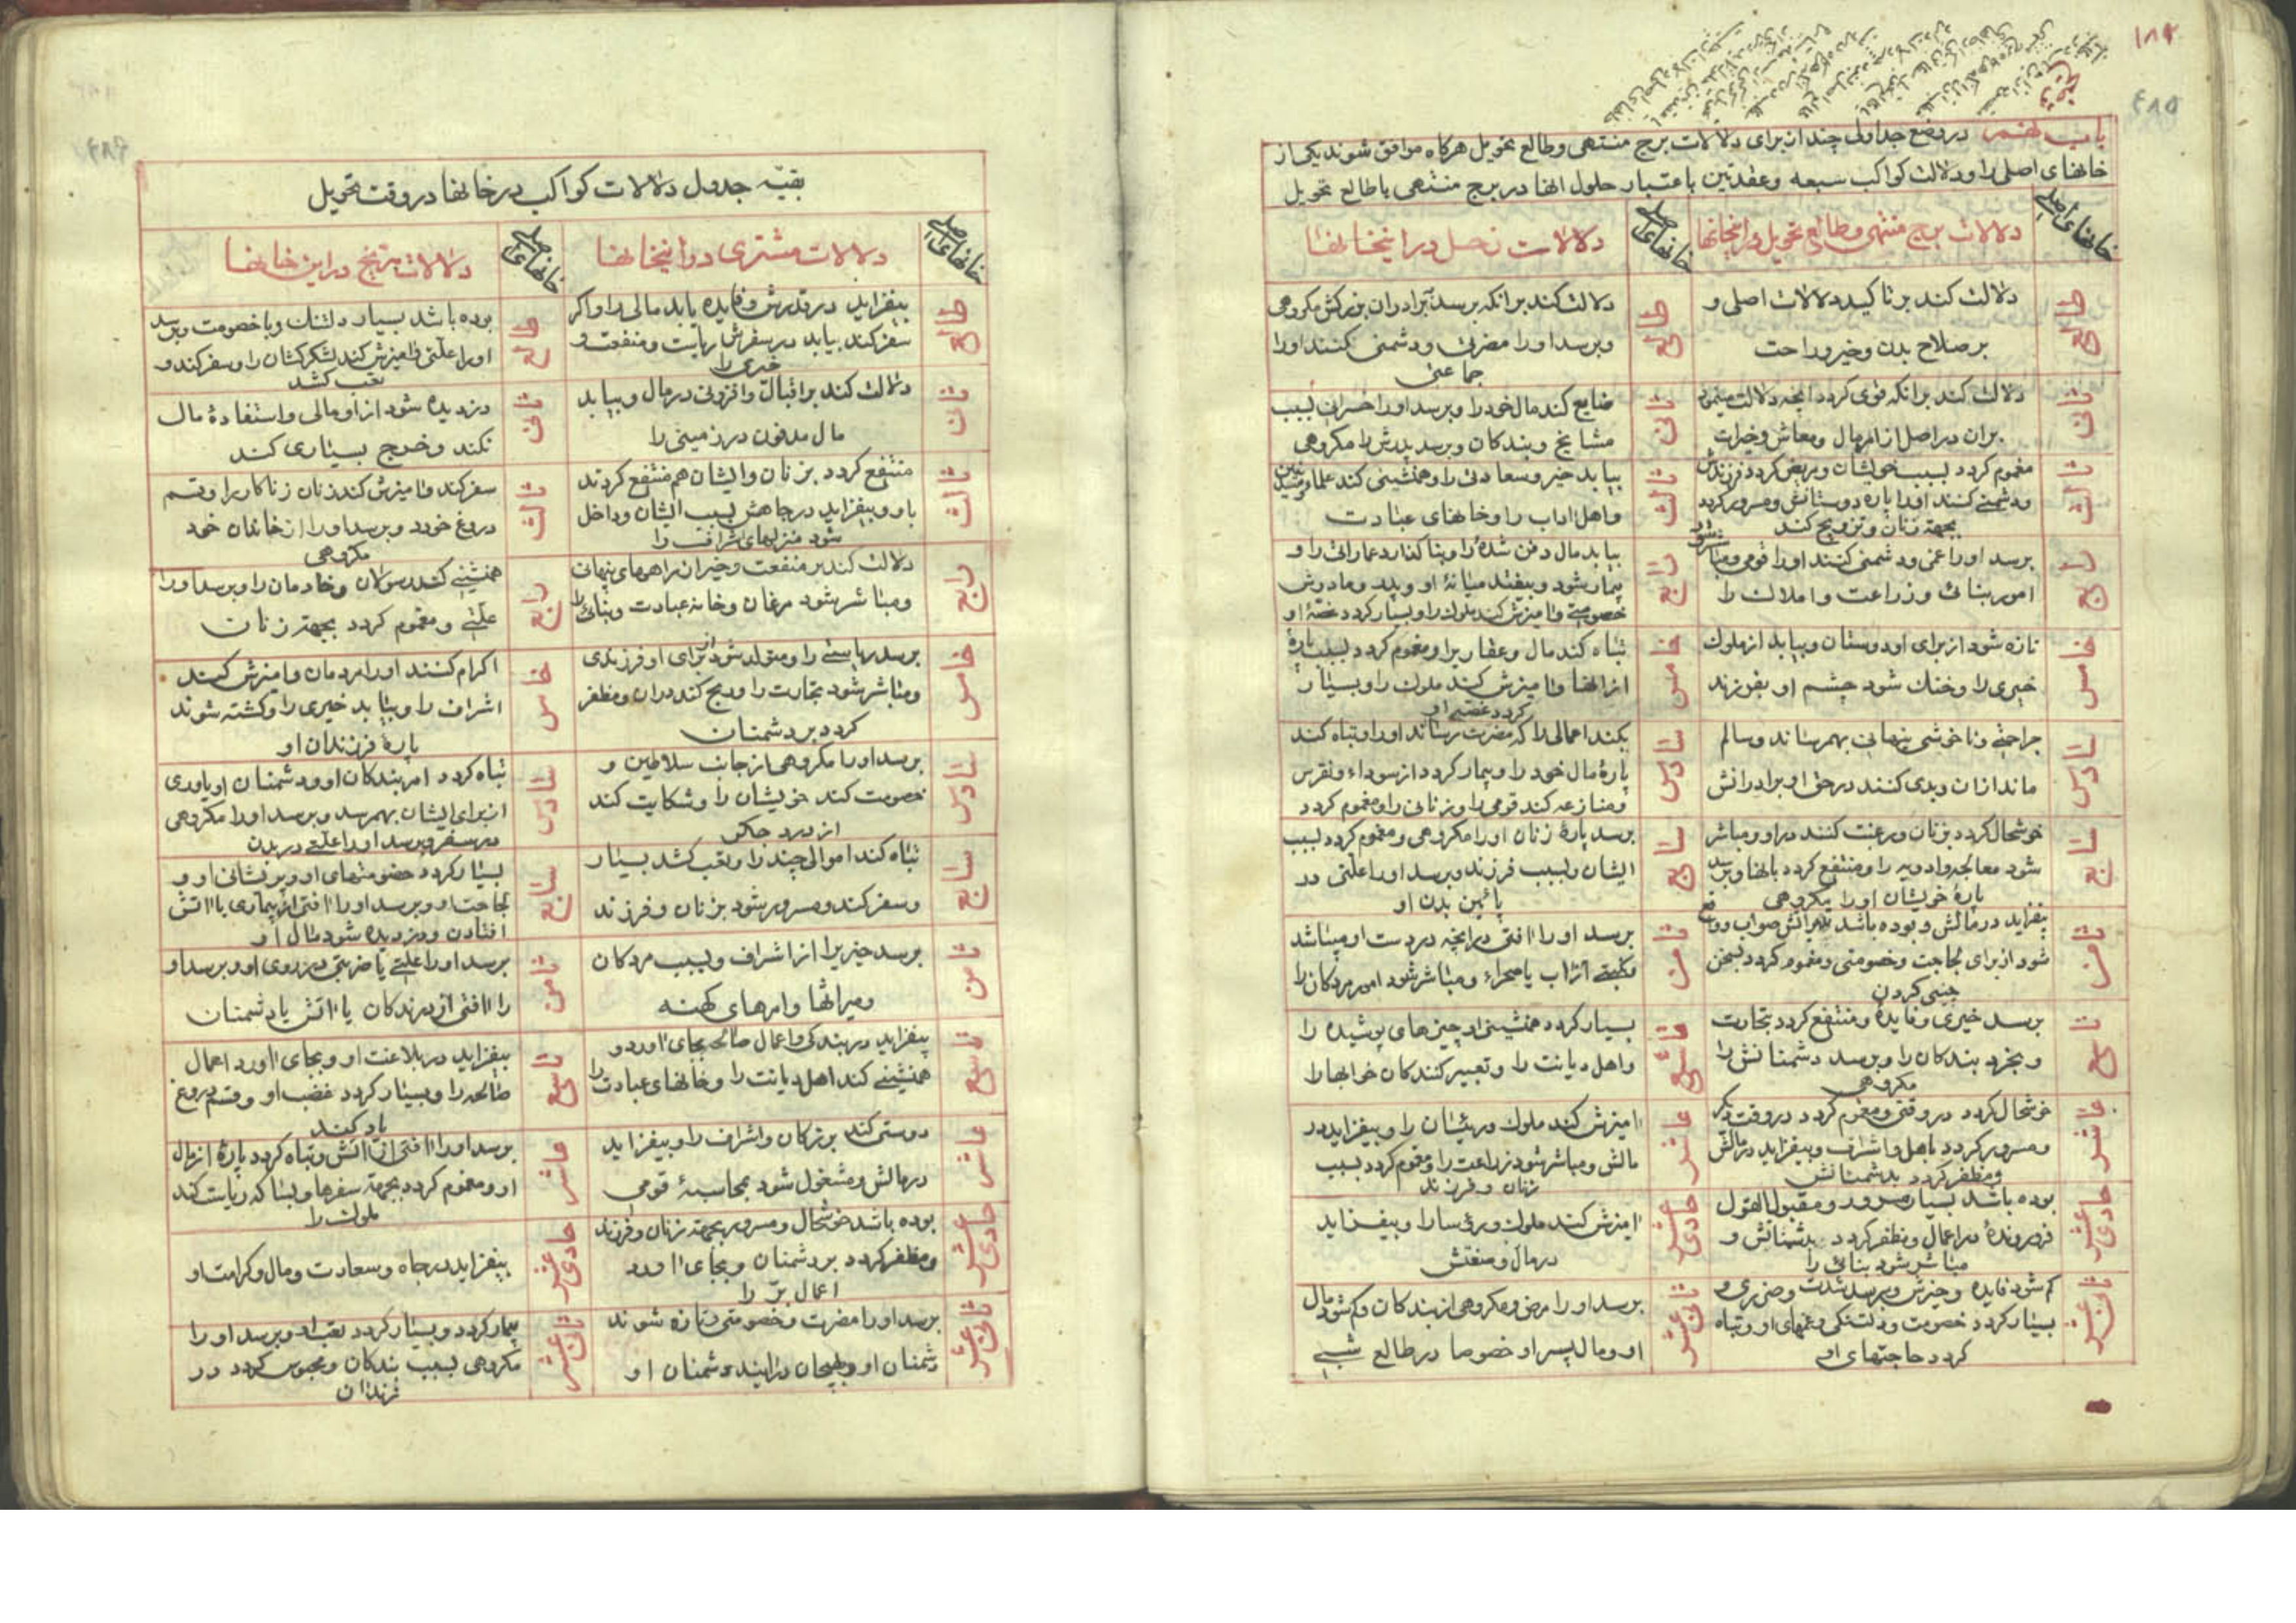 باب هشتم در وضع جداولی چند از برای دلالات برج منتهی وطالع تحویل هرکاه موافق شوند یکی از
خانهای اصلی را ودلالت کواکب سبعه وعقدتین باعتبار حلول انها در برج منتهی یا طالع تحویل
خانهای اصلی
دلالات برج منتهی وطالع تحویل در اینخانها
خانهای اصلی
دلالات زحل در اینخانها
طالع
دلالت کند بر تاکید دلالات اصلی و
بر صلاح بدن وخیر وراحت
طالع
دلالت کند بر انکه برسد برادران بزرکش مکروهی
وبرسد اورا مضرتی ودشمنی کنند اورا
جماعتی
ثانی
دلالت کند بر انکه قوی کردد انچه دلالت مینمود
بران در اصل از امر مال ومعاش وخیرات
ثانی
ضایع کند مال خود را وبرسد اورا خسران بسبب
مشایخ وبندکان وبرسد پدرش را مکروهی
ثالث
مغموم کردد بسبب خویشان ومریض کردد فرزندش
ودشمنی کنند اورا پارهٔ دوستانش ومسرور کردد
بجهة زنان وتزویج کند
ثالث
بیابد خیر وسعادتی را وهمنشینی کند علما
واهل اداب را وخانهای عبادت
رابع
برسد اورا غمی ودشمنی کنند اورا قومی ومباشر شود
امور بنائی وزراعت واملاک را
رابع
بیابد مال دفن شدهٔ را وبنا کذارد عماراتی را و
بیمار شود وبیفتد میانهٔ او وپدر ومادرش
خصومتی وامیزش کند ملوک را وبسیار کردد غصهٔ او
خامس
تازه شود از برای او دوستان وبیابد از ملوک
خیری را وخنک شود چشم او بفرزند
خامس
تباه کند مال وعقار را ومغموم کردد بسبب پارهٔ
از انها وامیزش کند ملوک را وبسیار
کردد غصهٔ او
سادس
جراحتی وناخوشی پنهانی بهمرساند وسالم
ماند از ان وبدی کنند در حق او برادرانش
سادس
بکند اعمالی را که مضرت رساند اورا وتباه کند
پارهٔ مال خود را وبیمار کردد از سوداء ونقرس
ومنازعه کند قومی را وزنانی را ومغموم کردد
سابع
خوشحال کردد بزنان ورغبت کنند در او ومباشر
شود معالجه وادویه را ومنتفع کردد بانها وبرسد
پارهٔ خویشان اورا مکروهی
سابع
برسد پارهٔ زنان اورا مکروهی ومغموم کردد بسبب
ایشان وبسبب فرزند وبرسد اورا علتی در
پائین بدن او
ثامن
بیفزاید در مالش وبوده باشد رایش صواب وواقع
شود از برای لجاجت وخصومتی ومغموم کردد بسخن
چینی کردن
ثامن
برسد اورا افتی در انچه در دست او میباشد
از اب یا صحراء ومباشر شود امور مردکان را
تاسع
برسد خیری وفایدهٔ ومنتفع کردد بتجارت
وبخرد بندکان را وبرسد دشمنانش را
مکروهی
تاسع
بسیار کردد همنشینی او چیزهای پوشیده را
واهل دیانت را وتعبیر کنندکان خوابها را
عاشر
خوشحال کردد در وقتی ومغموم کردد در وقت دیکر
ومسرور کردد باهل واشراف وبیفزاید در مالش
ومظفر کردد بدشمنانش
عاشر
امیزش کند ملوک ورئیسان را وبیفزاید در
مالش ومباشر شود زراعت را ومغموم کردد بسبب
زنان وفرزند
حادی عشر
بوده باشد بسیار مسرور ومقبول القول
در اعمال ومظفر کردد بدشمنانش و
مباشر شود بنائی را
حادی عشر
امیزش کند ملوک ورؤسا را وبیفزاید
در مال ومنفعتش
ثانی عشر
کم شود فایده وخیرش وبرسد شدت وضرری و
بسیار کردد خصومت ودلتنکی وغمهای او وتباه
کردد حاجتهای او
ثانی عشر
برسد اورا مرض ومکروهی از بندکان وکم شود مال
او ومال پسر او خصوصا در طالع شبی
بقیه جدول دلالات کواکب در خانها در وقت تحویل
خانهای اصلی
دلالات مشتری در اینخانها
خانهای اصلی
دلالات مریخ در این خانها
طالع
بیفزاید در قدرش وفایده یابد مالی را واکر
سفر کند بیابد در سفرش ریاست ومنفعت و
خیری را
طالع
بوده باشد بسیار دلتنک وبا خصومت وبرسد
اورا علتی وامیزش کند لشکرکشان را وسفر کند و
تعب کشد
ثانی
دلالت کند بر اقبال وافزونی در مال وبیابد
مال مدفون در زمینی را
ثانی
دزدیده شود از او مالی واستفادهٔ مال
نکند وخرج بسیاری کند
ثالث
منتفع کردد بزنان وایشان هم منتفع کردند
باو وبیفزاید در جاهش بسبب ایشان وداخل
شود منزلهای اشراف را
ثالث
سفر کند وامیزش کند زنان زناکار را وقسم
دروغ خورد وبرسد اورا از خانمان خود
مکروهی
رابع
دلالت کند بر منفعت وخیر از راههای پنهانی
ومباشر شود مرغان وخانه عبادت وبنائی را
رابع
همنشینی کند رسولان وخادمان را وبرسد اورا
علتی ومغموم کردد بجهة زنان
خامس
برسد ریاستی را ومتولد شود از برای او فرزندی
ومباشر شود تجارت را وربح کند دران ومظفر
کردد بر دشمنان
خامس
اکرام کنند اورا مردمان وامیزش کند
اشراف را وبیابد خیری را وکشته شوند
پارهٔ فرزندان او
سادس
برسد اورا مکروهی از جانب سلاطین و
خصومت کند خویشان را وشکایت کند
از درد جکر
سادس
تباه کردد امر بندکان او ودشمنان او یاوری
از برای ایشان بهمرسد وبرسد اورا مکروهی
در سفر وبرسد اورا علتی در بدن
سابع
تباه کند اموالی چند را وتعب کشد بسیار
وسفر کند ومسرور شود بزنان وفرزند
سابع
بسیار کردد خصومتهای او وپریشانی او و
لجاجت او وبرسد اورا افتی از بیماری یا اتش
افتادن ودزدیده شود مال او
ثامن
برسد خیر را از اشراف وبسبب مردکان
ومیراثها وامرهای کهنه
ثامن
برسد اورا علتی یا ضربتی در روی او وبرسد او
را افتی از درندکان یا اتش یا دشمنان
تاسع
بیفزاید در بندکی واعمال صالحه بجای اورد و
همنشینی کند اهل دیانت را وخانهای عبادت را
تاسع
بیفزاید در بلاغت او وبجای اورد اعمال
صالحه را وبسیار کردد غضب او وقسم دروغ
یاد کند
عاشر
دوستی کند بزرکان واشراف را وبیفزاید
در مالش ومشغول شود بمحاسبهٔ قومی
عاشر
برسد اورا افتی از اتش وتباه کردد پارهٔ از مال
او ومغموم کردد بجهة سفرها وبسا که ریاست کند
ملوک را
حادی عشر
بوده باشد خوشحال ومسرور بجهة زنان وفرزند
ومظفر کردد بر دشمنان وبجای اورد
اعمال بر را
حادی عشر
بیفزاید در جاه وسعادت ومال وکرامت او
ثانی عشر
برسد اورا مضرت وخصومتی وتازه شوند
دشمنان او وبهیجان درایند دشمنان او
ثانی عشر
بیمار کردد وبسیار کردد تعب او وبرسد اورا
مکروهی بسبب بندکان ومحبوس کردد در
زندان